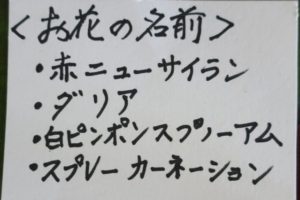 <お花の名前>
・赤ニューサイラン
・ダリア
・白ピンポンスプノーアム
・スプレーカーネーション